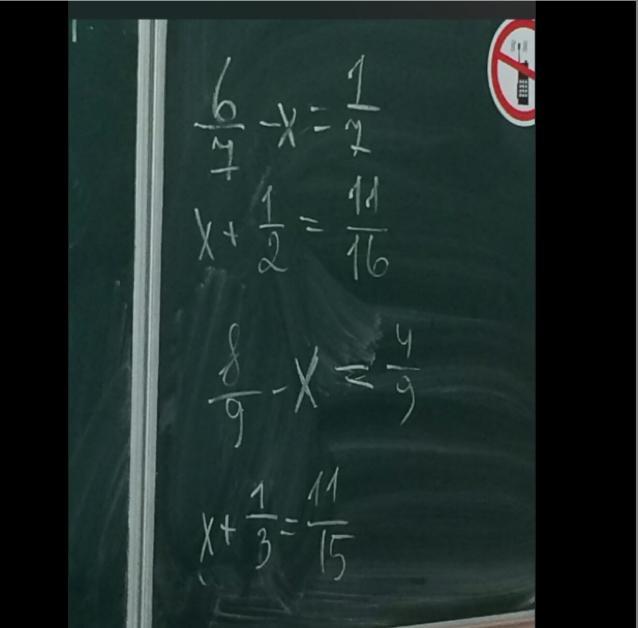 6/7 - x = 1/7
x + 1/2 = 11/16
8/9 - x = 4/9
x + 1/3 = 11/15